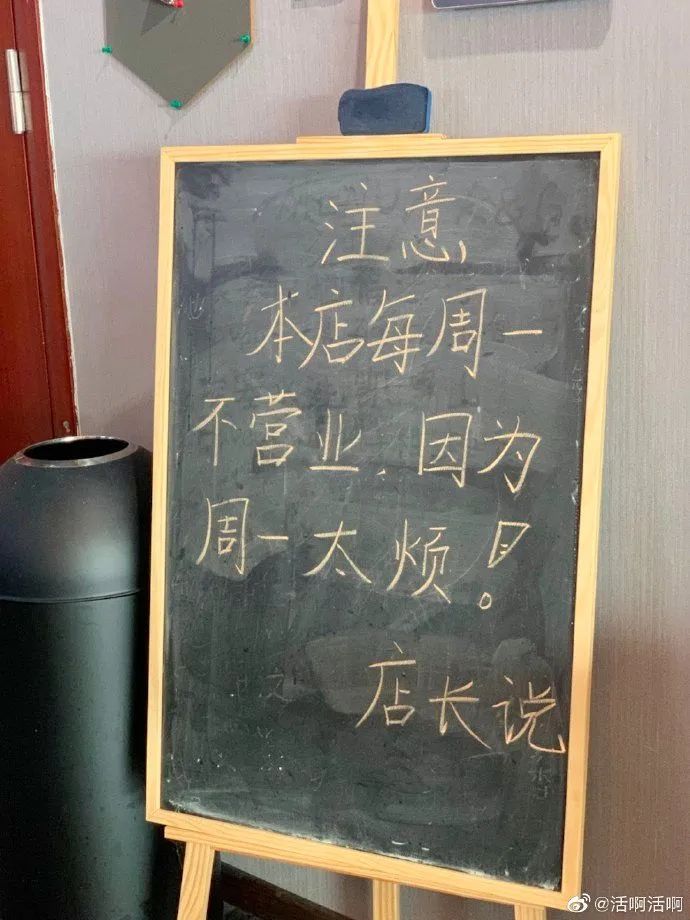 注意
本店每周一
不营业，因为
周一太烦！
店长说
@活啊活啊